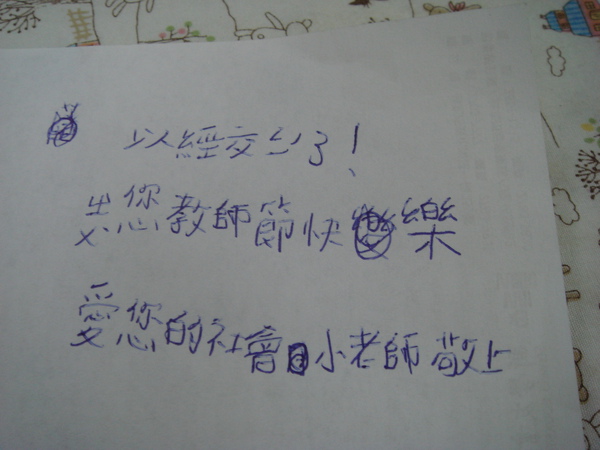 以經交台了!
您教師節快樂
愛您的社會小老師敬上